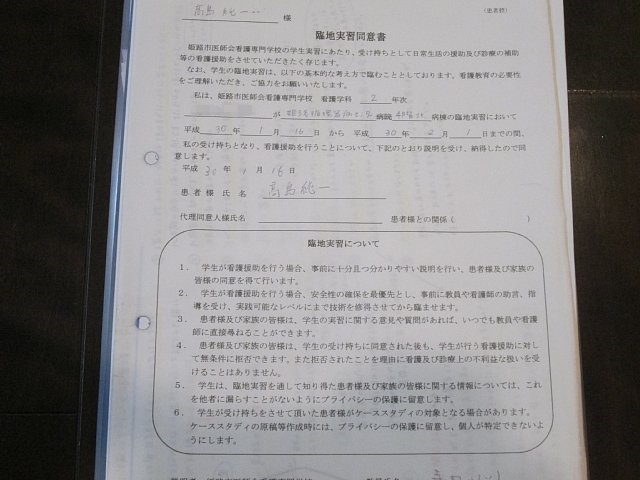 様
（患者控）
臨地実習同意書
姫路市医師会看護専門学校の学生実習にあたり、受け持ちとして日常生活の援助及び診療の補助
等の看護援助をさせていただきたく存じます。
なお、学生の臨地実習は、以下の基本的な考え方で臨むこととしております。看護教育の必要性
をご理解いただき、ご協力をお願いいたします。
私は、姫路市医師会看護専門学校 看護学科 2 年次
が 病院 病棟の臨地実習において
平成 30 年 1 月 16 日 から 平成 30 年 2 月 1 日までの間、
私の受け持ちとなり、看護援助を行うことについて、下記のとおり説明を受け、納得したので同
意します。
平成 30 年 1 月 16 日
患者様氏名 高島純一
代理同意人様氏名 患者様との関係（ ）
臨地実習について
1． 学生が看護援助を行う場合、事前に十分且つ分かりやすい説明を行い、患者様及び家族の
皆様の同意を得て行います。
2． 学生が看護援助を行う場合、安全性の確保を最優先とし、事前に教員や看護師の助言、指
導を受け、実践可能なレベルにまで技術を修得させてから臨ませます。
3． 患者様及び家族の皆様は、学生の実習に関する意見や質問があれば、いつでも教員や看護
師に直接尋ねることができます。
4． 患者様及び家族の皆様は、学生の受け持ちに同意された後も、学生が行う看護援助に対し
て無条件に拒否できます。また拒否されたことを理由に看護及び診療上の不利益な扱いを受
けることはありません。
5． 学生は、臨地実習を通して知り得た患者様及び家族の皆様に関する情報については、これ
を他者に漏らすことがないようにプライバシーの保護に留意します。
6． 学生が受け持ちをさせて頂いた患者様がケーススタディの対象となる場合があります。
ケーススタディの原稿等作成時には、プライバシーの保護に留意し、個人が特定できないよ
うにします。